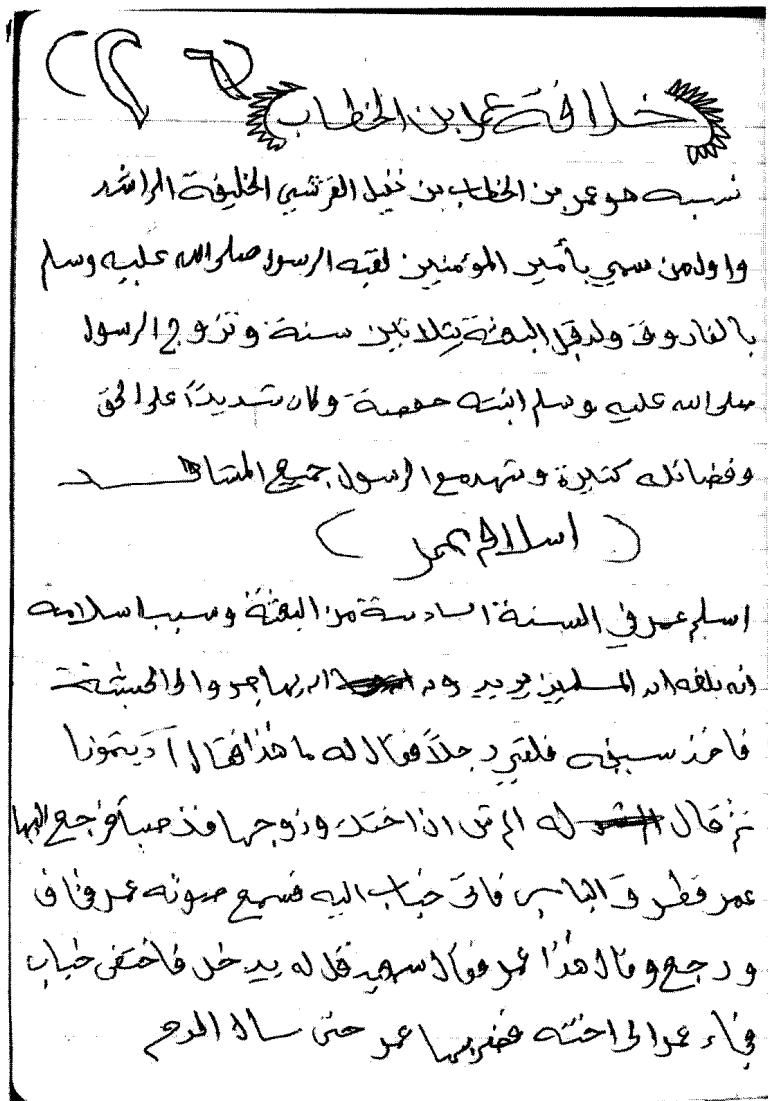 خلافة عمر ابن الخطاب
نسبه هو عمر بن الخطاب بن نفيل القرشي الخليفة الراشد
واول من سمي بأمير المؤمنين لقبه الرسول صلى الله عليه وسلم
بالفاروق ولد قبل البعثة بثلاثين سنة وتزوج الرسول
صلى الله عليه وسلم ابنته حفصة وكان شديداً على الحق
وفضائله كثيرة وشهد مع الرسول جميع المشاهد
(اسلام عمر)
اسلم عمر في السنة السادسة من البعثة وسبب اسلامه
انه بلغه ان المسلمين يريدون ان يهاجروا الى الحبشة
فاخذ سيفه فلقي رجلاً فقال له ما هذا فقال
ثم قال له الم تر ان اختك وزوجها قد صبأ فرجع اليها
عمر فطرق الباب فأتى خباب اليه فسمع صوته عمر فخاف
ورجع وقال هذا عمر فقال سعيد قل له يدخل فاختفى خباب
فجاء عمر الى اخته فضربها عمر حتى سال الدم